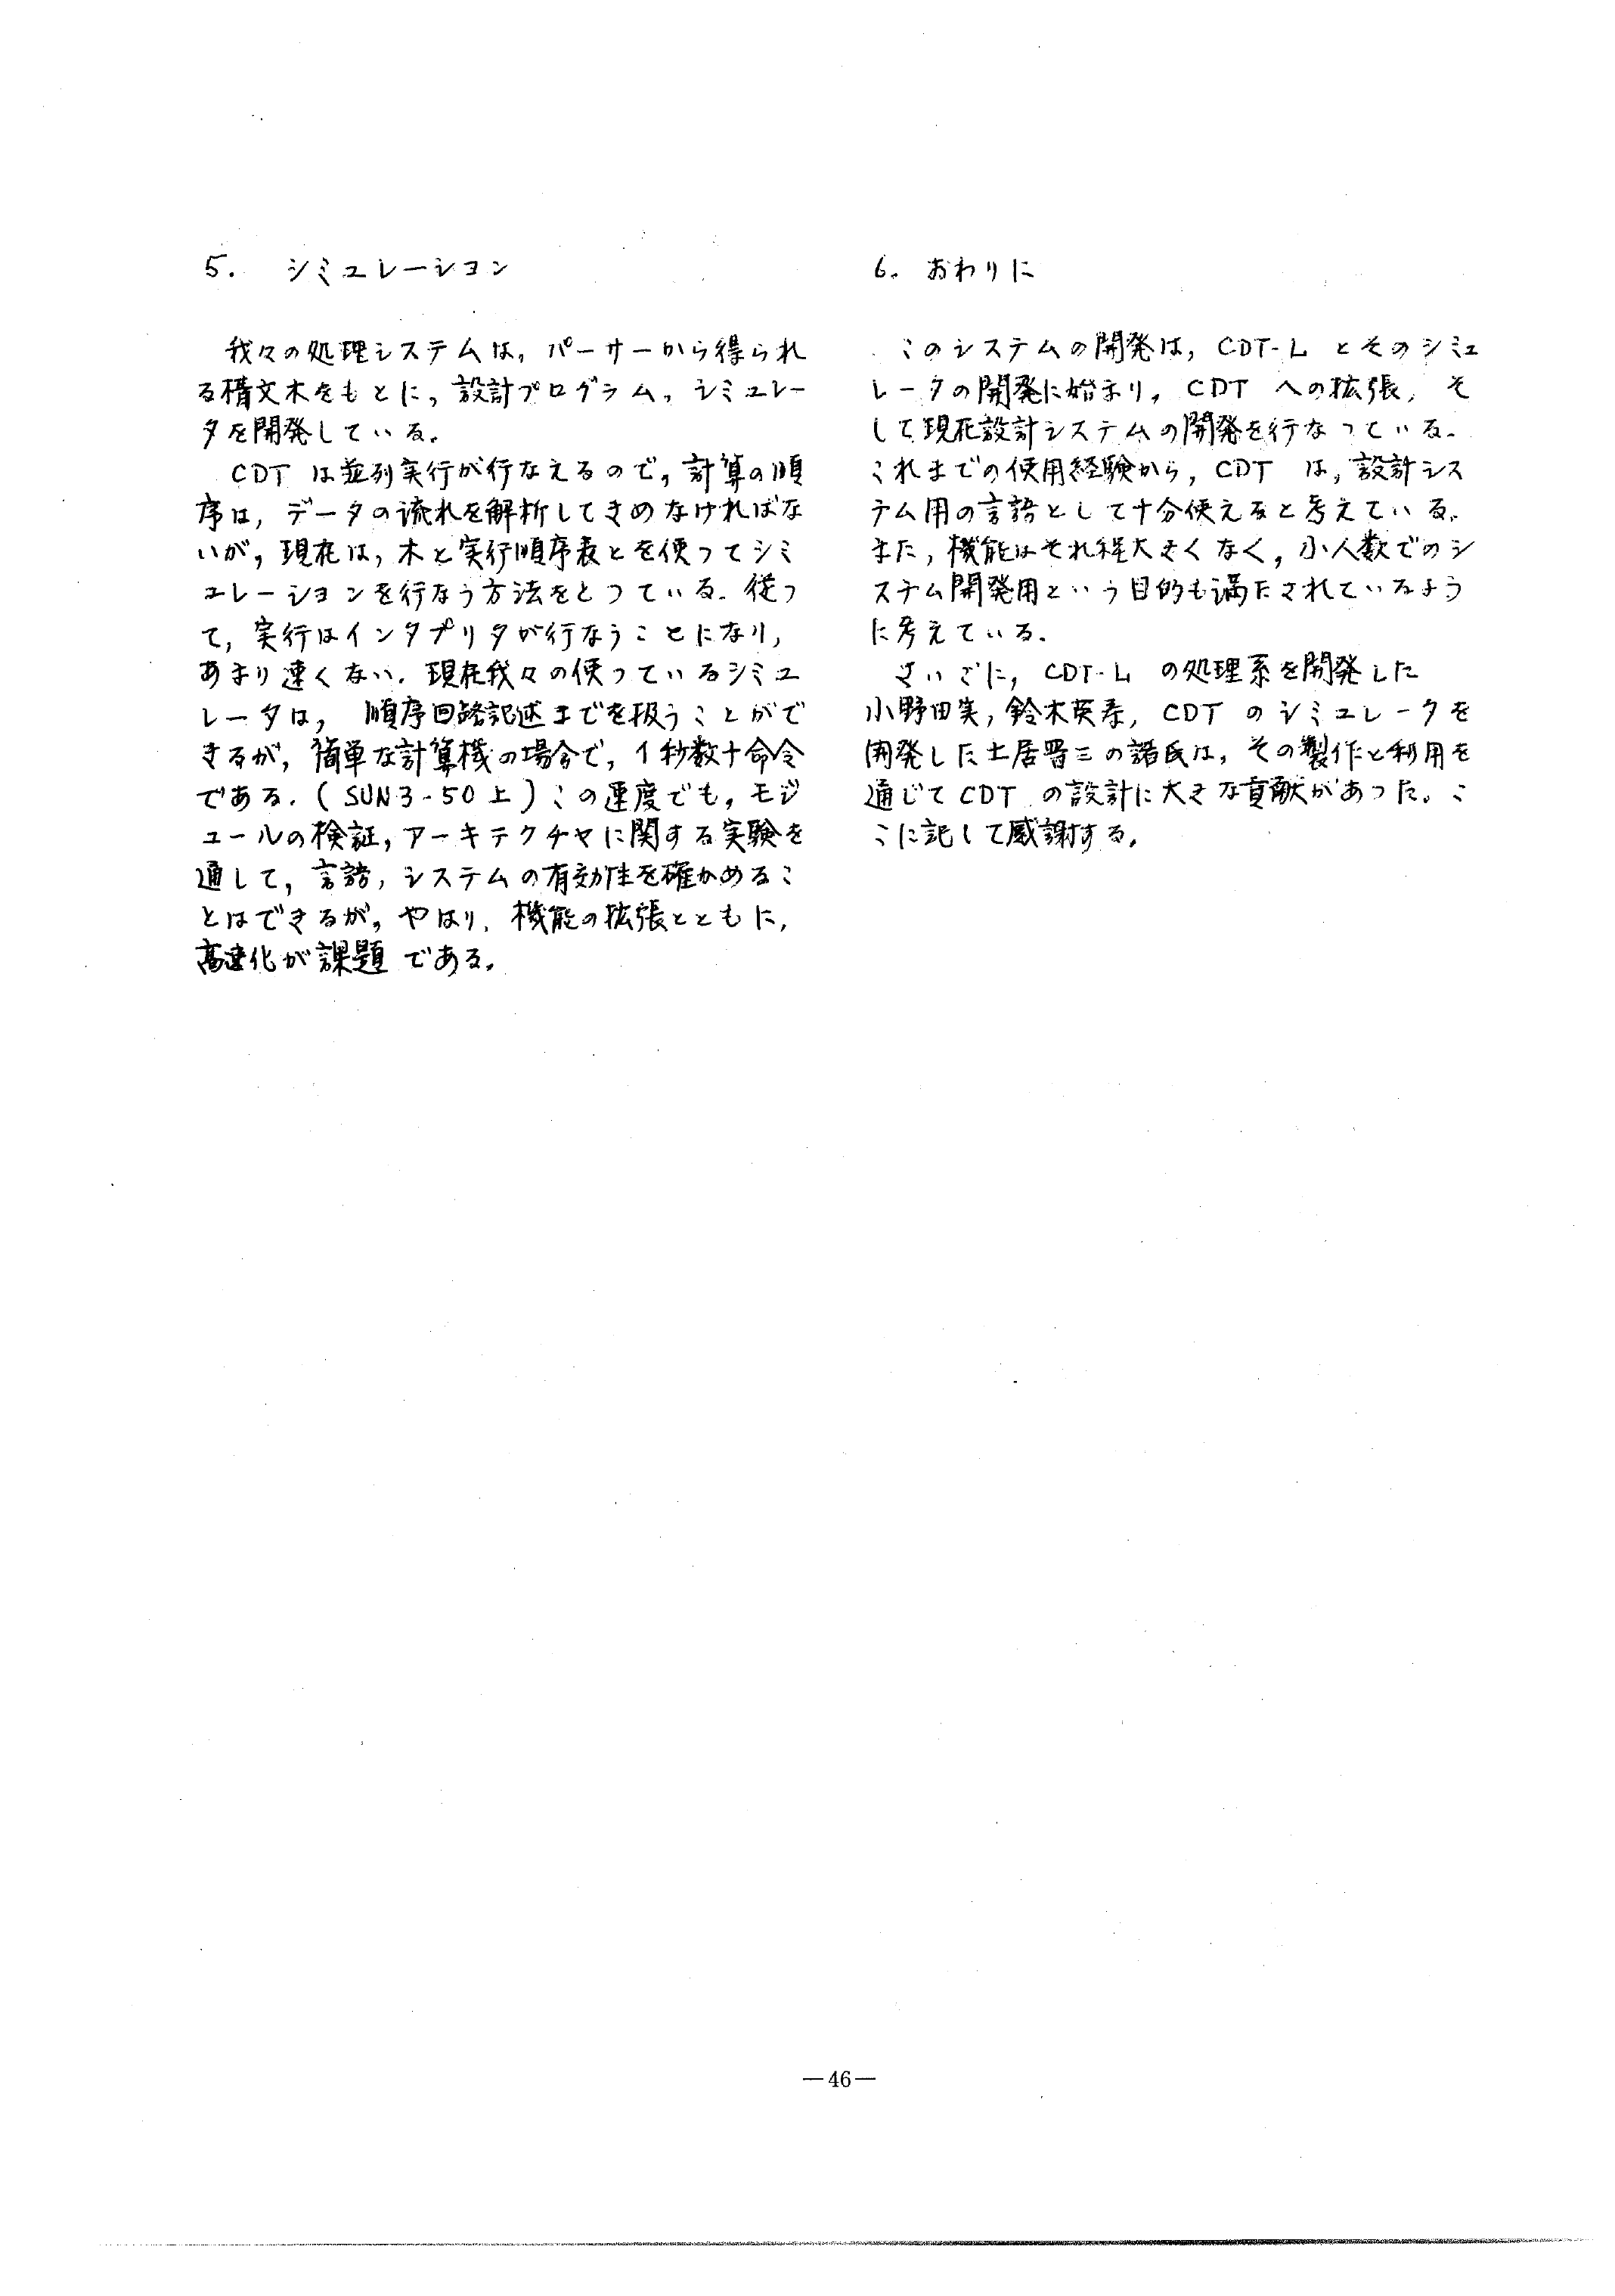 5. シミュレーション
我々の処理システムは，パーサーから得られ
る構文木をもとに，設計プログラム，シミュレー
タを開発している。
CDT は並列実行が行なえるので，計算の順
序は，データの流れを解析してきめなければな
いが，現在は，木と実行順序表とを使ってシミ
ュレーションを行なう方法をとっている．従っ
て，実行はインタプリタが行なうことになり，
あまり速くない．現在我々の使っているシミュ
レータは，順序回路記述までを扱うことがで
きるが，簡単な計算機の場合で，1秒数十命令
である．(SUN3-50上) この速度でも，モジ
ュールの検証，アーキテクチャに関する実験を
通して，言語，システムの有効性を確かめるこ
とはできるが，やはり，機能の拡張とともに，
高速化が課題である．
6. おわりに
このシステムの開発は，CDT-L とそのシミュ
レータの開発に始まり，CDT への拡張，そ
して現在設計システムの開発を行なっている．
これまでの使用経験から，CDT は，設計シス
テム用の言語として十分使えると考えている．
また，機能はそれ程大きくなく，小人数でのシ
ステム開発用という目的も満たされているよう
に考えている．
さいごに，CDT-L の処理系を開発した
小野田実，鈴木英寿，CDT のシミュレータを
開発した土居晋三の諸氏は，その製作と利用を
通じて CDT の設計に大きな貢献があった。こ
こに記して感謝する．
—46—